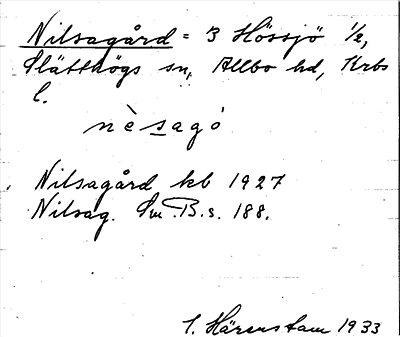 Nilsagård = 3 Hössjö ½,
Slätthögs sn, Allbo hd, Krbs
l.
nèsagó
Nilsagård kb 1927
Nilsag. Sm B.s. 188.
I. Härenstam 1933